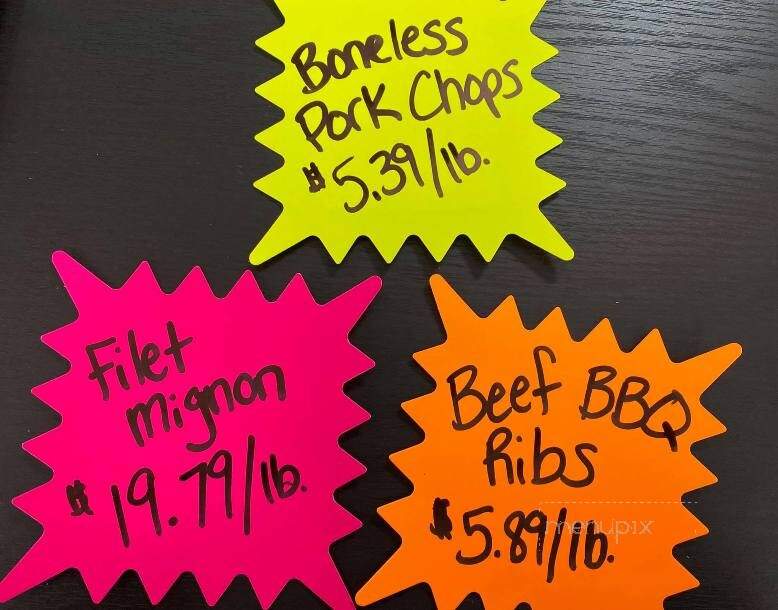 Boneless
Pork Chops
$5.39/lb.
Filet
mignon
$19.79/lb.
Beef BBQ
Ribs
$5.89/lb.
menupix